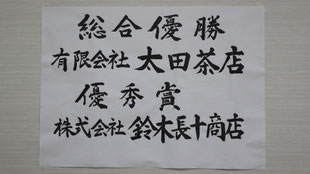 総合優勝
有限会社 太田茶店
優秀賞
株式会社 鈴木長十商店